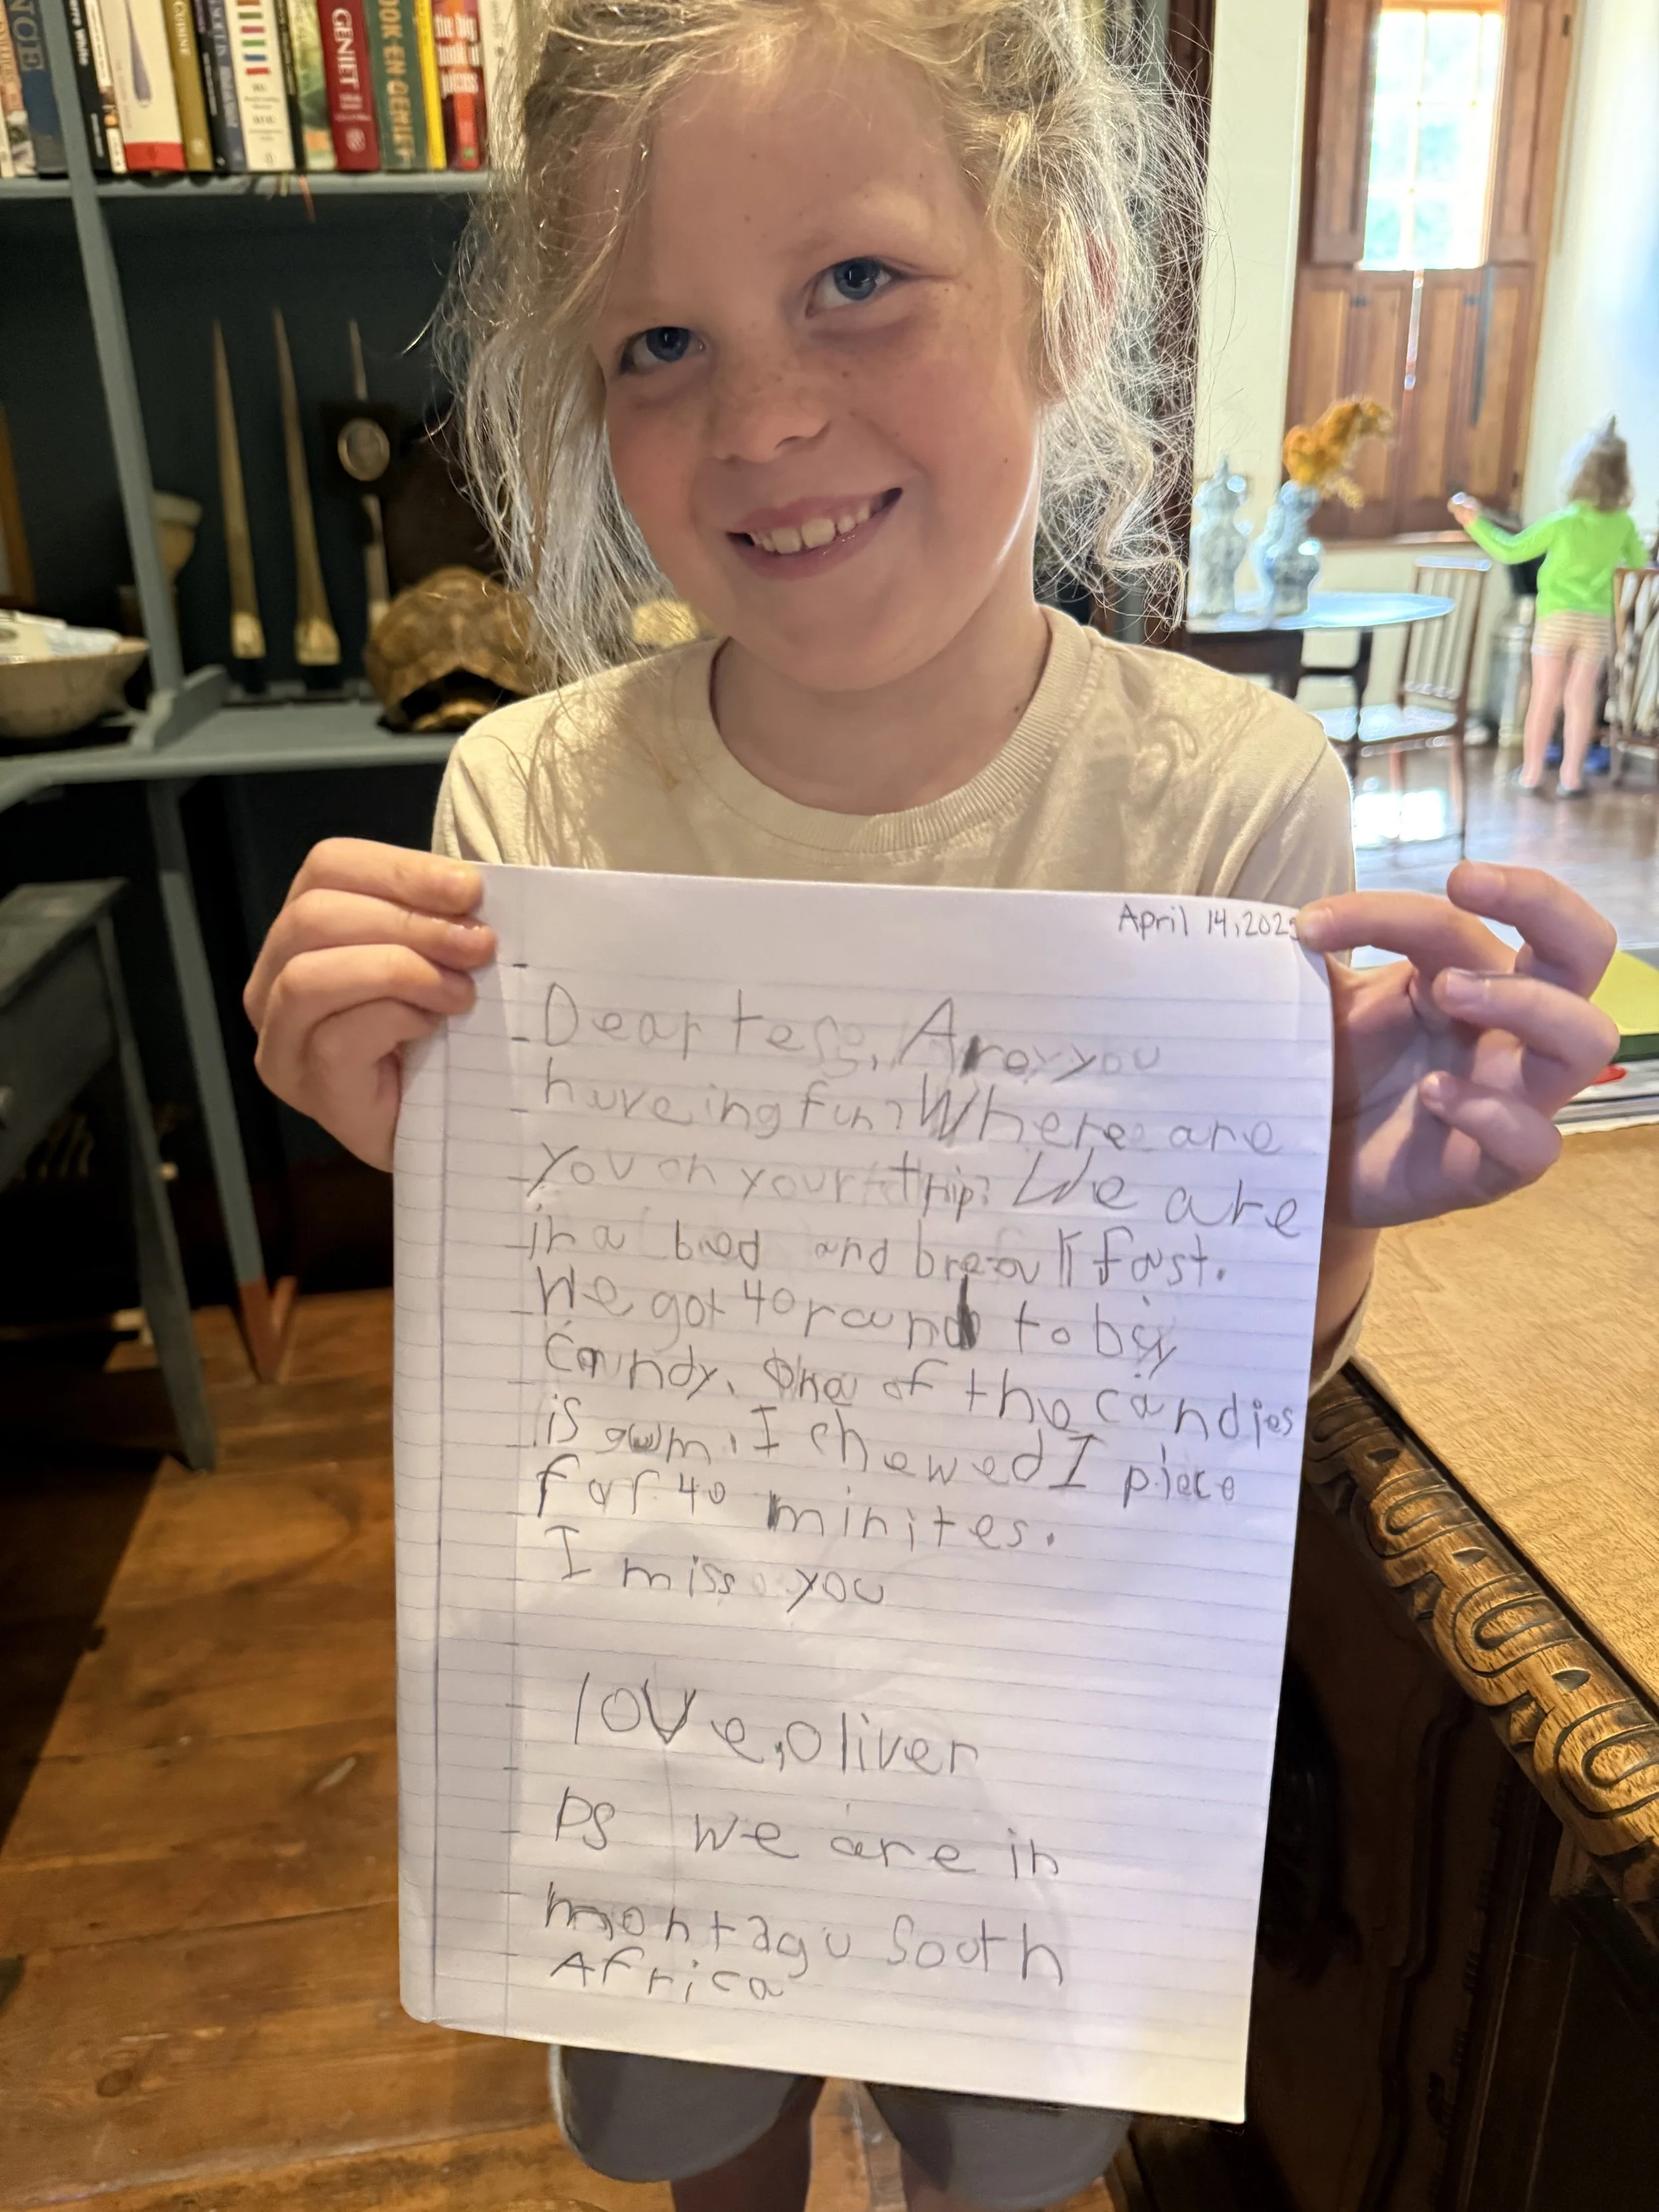 GENIET
the big
book of
April 14, 202
Dear tess, Are you
huveing fun? Where are
you on your trip? We are
in a bed and breakfast.
We got 40 rand to by
Candy. One of the candies
is gum. I chewed 1 piece
for 40 minites.
I miss you
love, oliver
PS we are in
montagu South
Africa